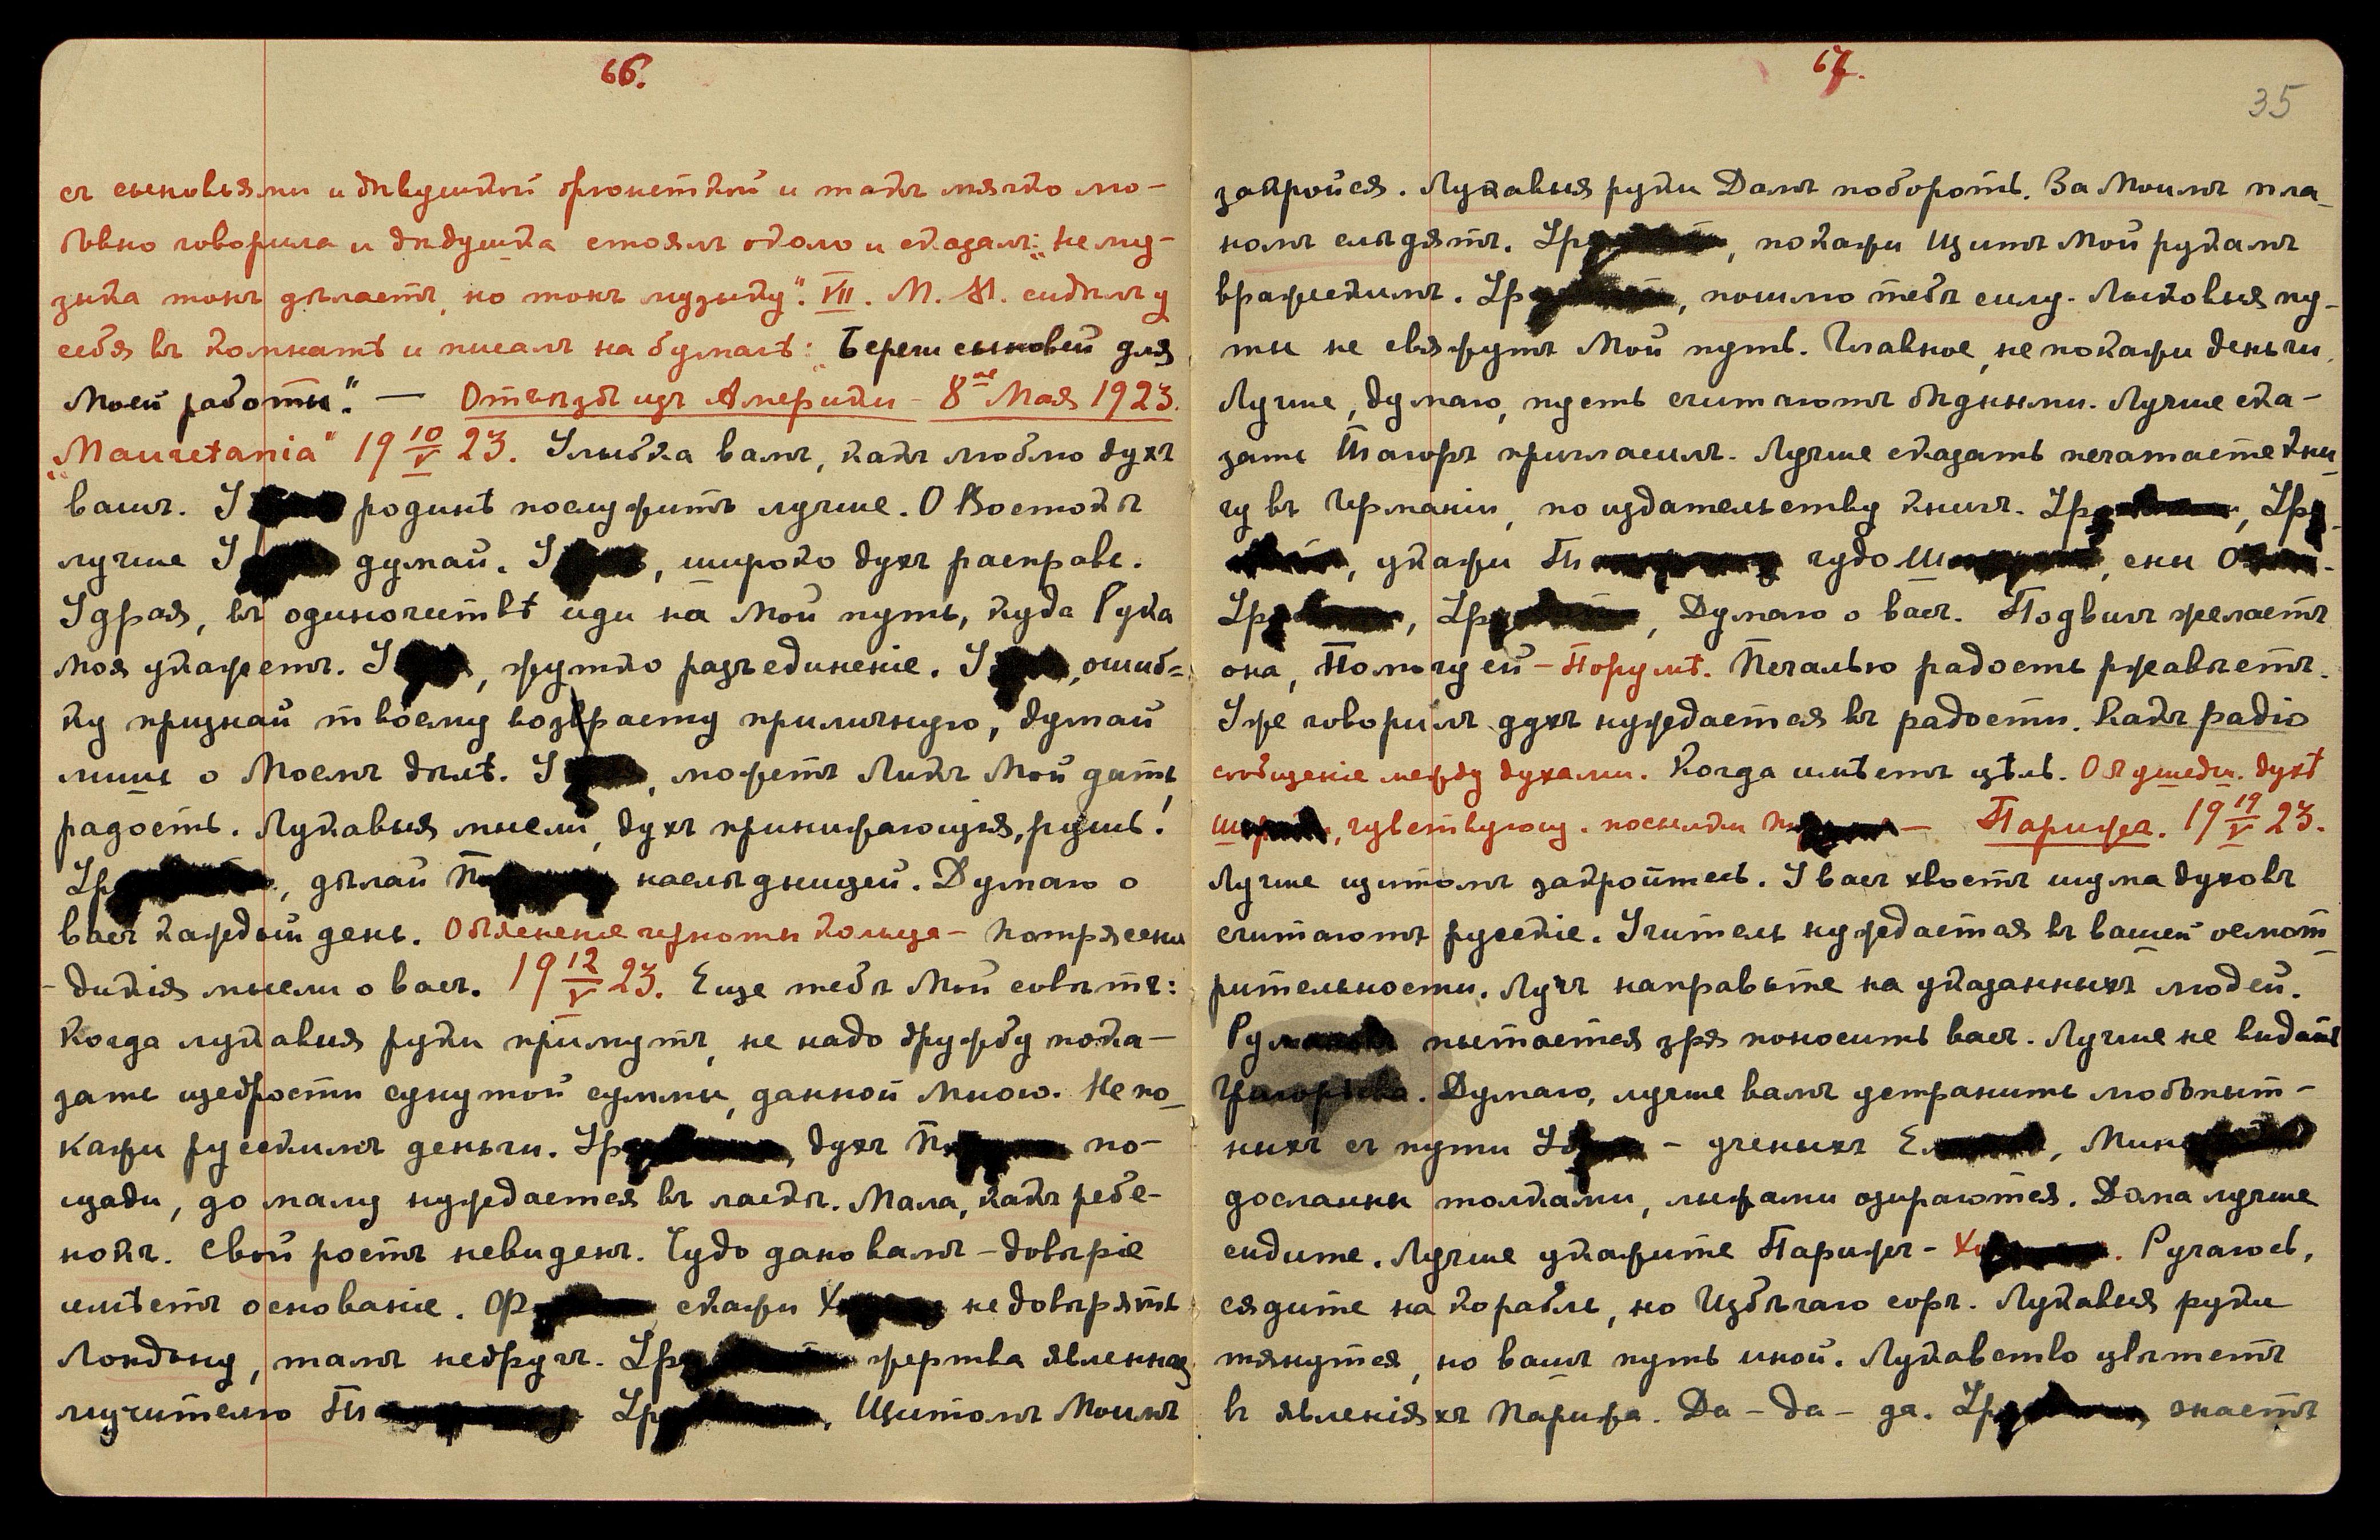 66.
съ сыновьями и дѣвушкой брюнеткой и такъ мягко лю-
бовно говорила и дѣдушка стоялъ около и сказалъ: „не му-
зыка тонъ дѣлаетъ, но тонъ музыку“. VII. М. М. сидѣлъ у
себя въ комнатѣ и писалъ на бумагѣ: „Береги сыновей для
Моей работы“. — Отъѣздъ изъ Америки – 8го Мая 1923.
„Mauretania“ 19 10/V 23. Улыбка вамъ, какъ люблю духъ
вашъ. У родинѣ послужитъ лучше. О Востокѣ
лучше У думай. У, широко духъ расправь.
Удрая, въ одиночествѣ иди на Мой путь, куда Рука
Моя укажетъ. У, жутко разъединеніе. У, ошиб=
ку признай твоему возврасту приличную, думай
лишь о Моемъ дѣлѣ. У, можетъ Ликъ Мой дать
радость. Лукавыя мысли, духъ принижающія, рушь!
Ур, дѣлай П наслѣдницей. Думаю о
васъ каждый день. Объясненіе черноты кольца – Потрясены
– дикія мысли о васъ. 19 12/V 23. Еще тебѣ Мой совѣтъ:
Когда лукавыя руки примутъ, не надо дружбу пока-
зать щедрости сунутой суммы, данной Мною. Не по-
кажи русскимъ деньги. Ур, духъ П по-
щади, до малу нуждается въ ласкѣ. Мала, какъ ребе-
нокъ. Свой ростъ невиденъ. Чудо дано вамъ – довѣріе
имѣетъ основаніе. Ф скажи Х не довѣрять
Лондону, тамъ недругъ. Ур жертва явленная
мучителю П Ур, Щитомъ Моимъ
67.
35
закройся. Лукавыя руки Дамъ побороть. За Моимъ пла-
номъ слѣдятъ. Ур, покажи Щитъ Мой рукамъ
вражескимъ. Ур, пошлю тебѣ силу. Лысковыя пу-
ты не свяжутъ Мой путь. Главное, не покажи деньги.
Лучше, думаю, пусть считаютъ бѣдными. Лучше ска-
зать Тагоръ пригласилъ. Лучше сказать печатаете кни-
гу въ Германіи, по издательству книгъ. Ур, Ур
, укажи П чудо Ш, сны О.
Ур, Ур, Думаю о васъ. Подвигъ желаетъ
она, Помогу ей – Порумѣ. Печалью радость ржавѣетъ.
Уже говорилъ духъ нуждается въ радости. Какъ радіо
сообщеніе между духами. Когда имѣетъ цѣль. О ушедш. духѣ
Ш, чувствующ. посылки П – Парижъ. 19 19/V 23.
Лучше щитомъ закройтесь. У васъ хвостъ шума духовъ
считаютъ русскіе. Учитель нуждается въ вашей осмот-
рительности. Лучъ направьте на указанныхъ людей.
Рум пытается зря поносить васъ. Лучше не видать
Григорьева. Думаю, лучше вамъ устранить любопыт-
ныхъ съ пути У – ученыхъ Е, Мин
досланы толками, лыжами озираются. Дома лучше
сидите. Лучше укажите Парижъ – Х. Ручаюсь,
сядите на корабль, но Избѣгаю соръ. Лукавыя руки
тянутся, но вашъ путь иной. Лукавство цвѣтетъ
въ явленіяхъ Парижа. Да – да – да. Ур, знаетъ